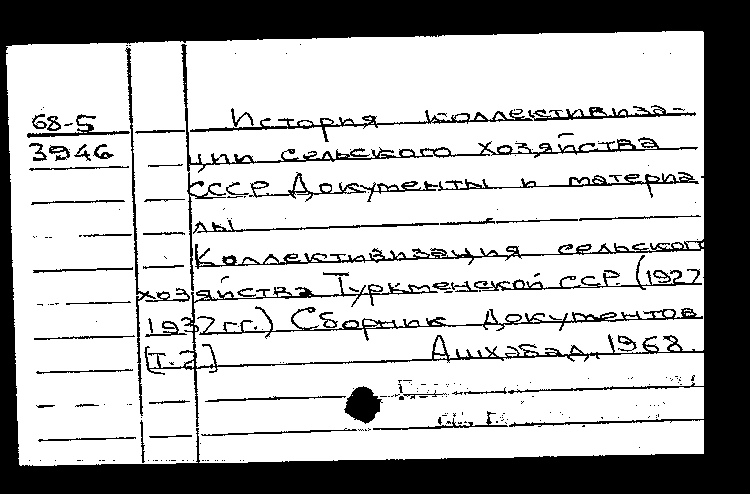 68-5 История коллективиза-
3946 ции сельского хозяйства
СССР. Документы и материа-
лы
Коллективизация сельского
хозяйства Туркменской ССР. (1927-
1937гг.) Сборник документов
[Т.2] Ашхабад, 1968.